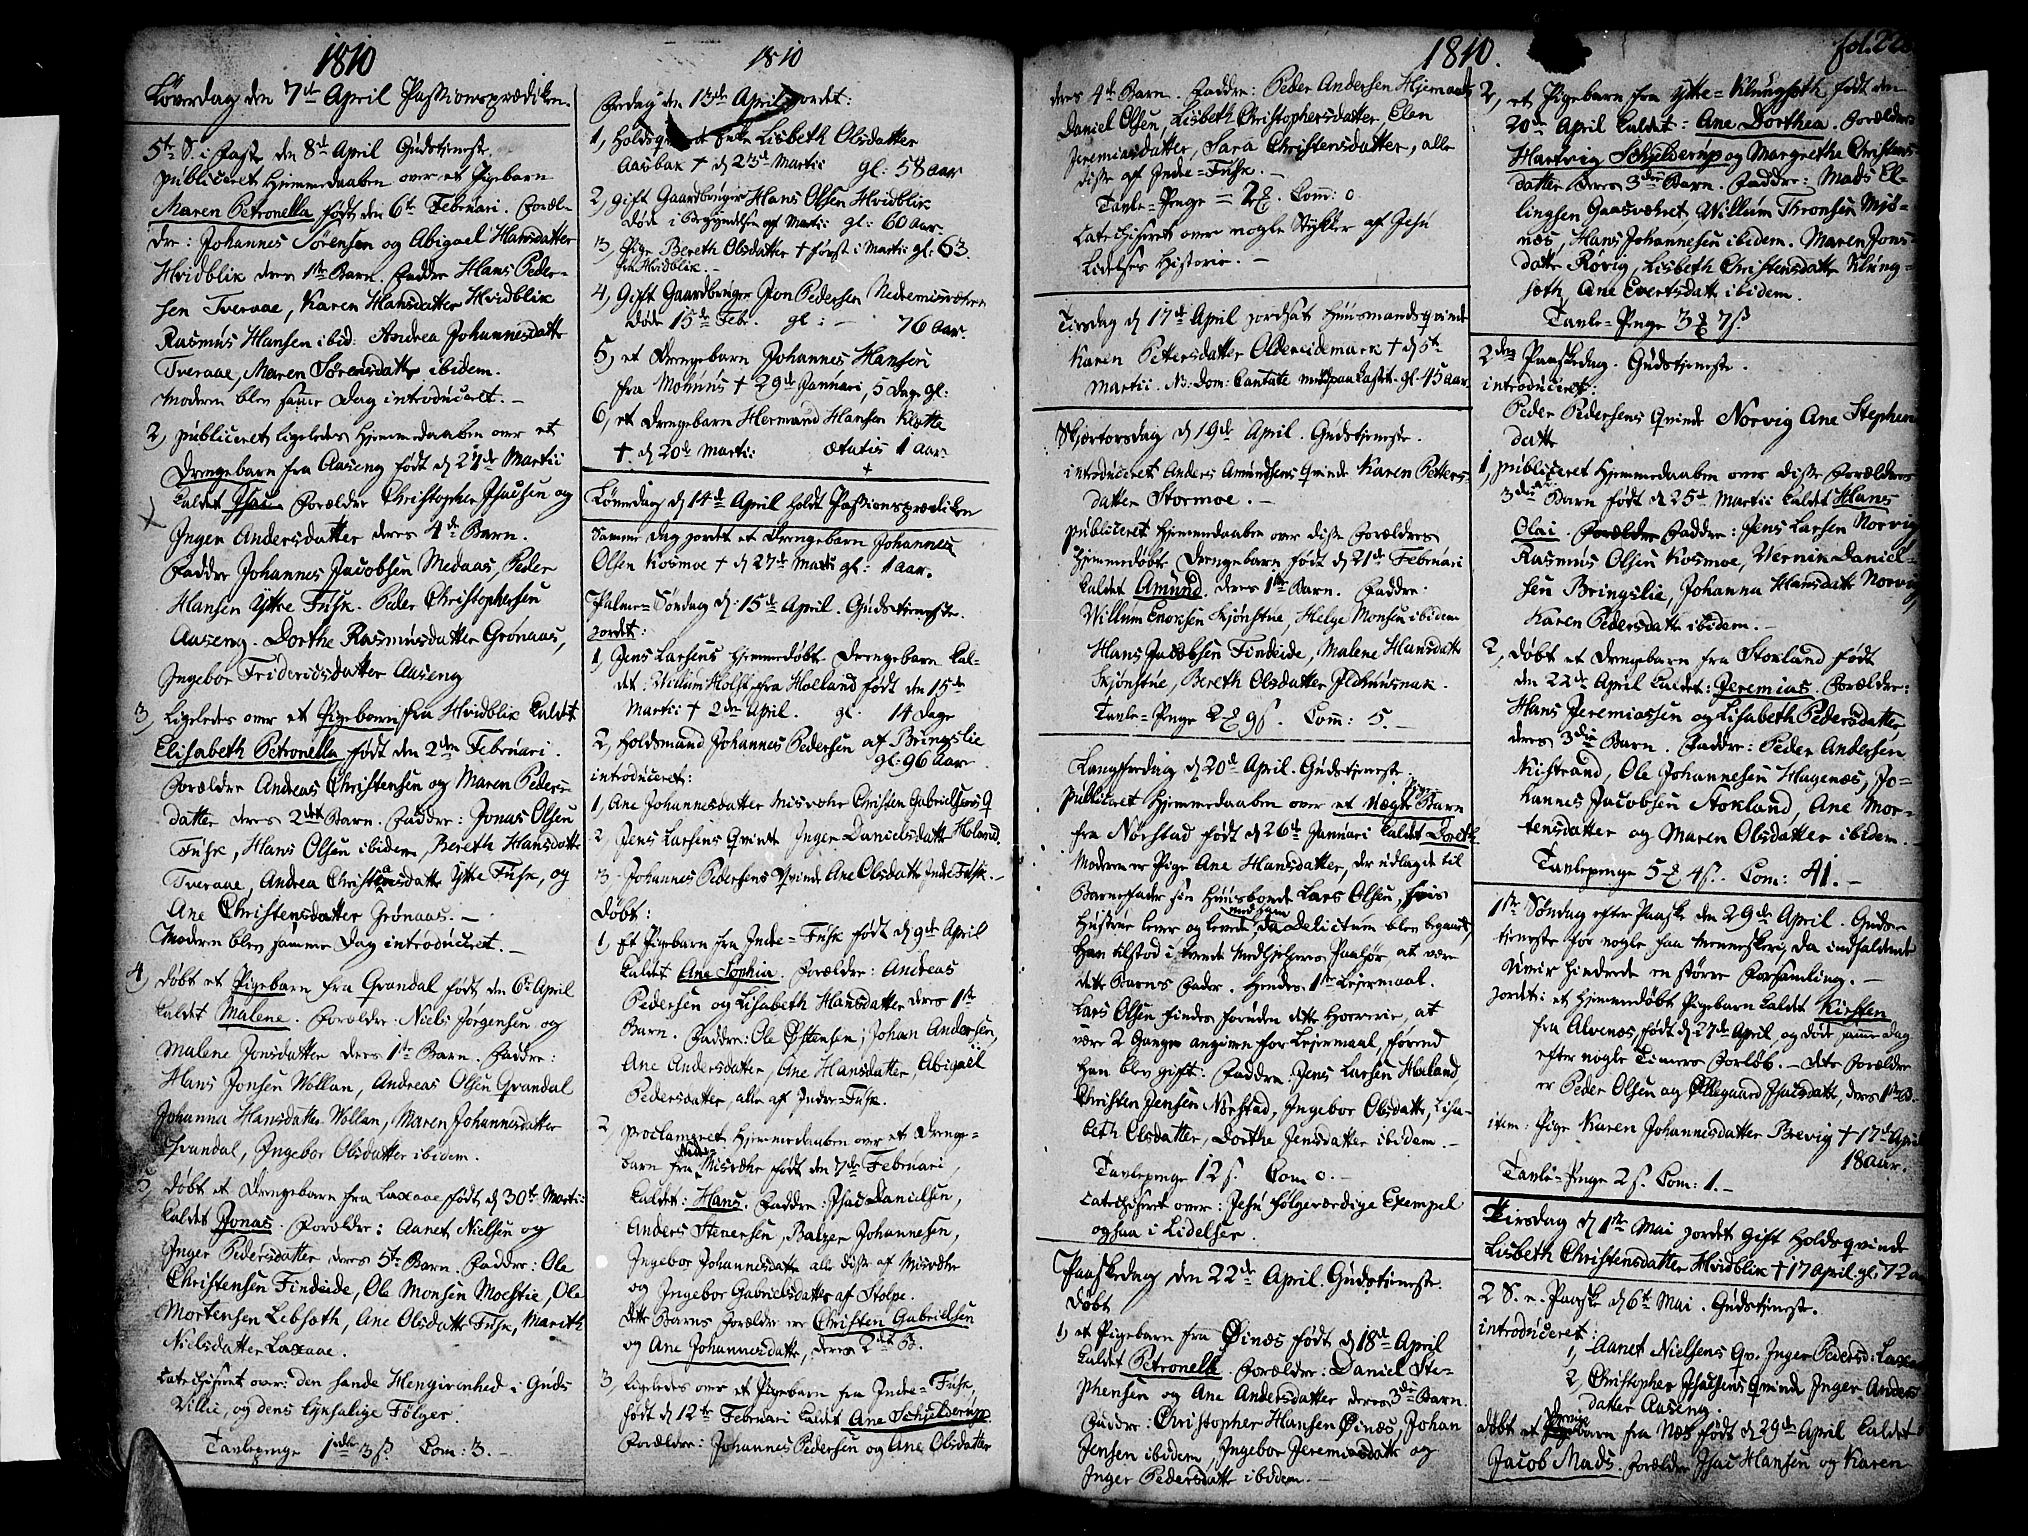 1810
Løverdag den 7de April Passionsprædiken.
5te S. i Faste den 8de April Gudstieneste.
publiceret hjemmedaaben over et Pigebarn
Maren Petronella født den 6te Februari. Foræl-
dre: Johannes Sørensen og Abigael Hansdatter
Hvidblik deres 1ste Barn. Faddre Hans Peder-
sen Tveraae, Karen Hansdatter Hvidblik
Rasmus Hansen ibid: Andrea Johannesdatter
Tveraae, Maren Sørensdatter ibidem.
Moderen blev samme Dag introduceret. –
2, publiceret ligeledes hjemmedaaben over et
Drengebarn fra Aaseng født d 27de Martii
kaldet Isac Forældre Christopher Isacsen og
Inger Andersdatter deres 4de Barn.
Faddre Johannes Jacobsen Medaas, Peder
Hansen Yttre Fusk. Peder Christophersen
Aaseng. Dorthe Rasmusdatter Grønaas,
Ingebor Fridericsdatter Aaseng
3, Ligeledes over et Pigebarn fra Hvidblik kaldet
Elisabeth Petronella født den 2den Februari.
Forældre Andreas Christensen og Maren Peders-
datter deres 2det Barn. Faddre: Jonas Olsen
Fusk, Hans Olsen ibidem, Bereth Hansdatter
Tveraae, Andrea Christensdatter Ytte Fusk, og
Ane Christensdatter Grønaas. –
Moderen blev samme Dag introduceret. –
4, døbt et Pigebarn fra Qvandal født den 6te April
kaldet Malene. Forældre: Niels Jørgensen og
Malene Jonsdatter deres 1ste Barn. Faddre:
Hans Jonsen Vollan, Andreas Olsen Qvandal
Johanna Hansdatter Vollan, Maren Johannesdatter
Qvandal, Ingebor Olsdatter ibidem.
5, døbt et Drengebarn fra Laxaae født d 30te Martii
kaldet Jonas. Forældre: Aanet Nielsen og
Inger Pedersdatter deres 5te Barn. Faddre: Ole
Christensen Findeide, Ole Monsen Moestie, Ole
Mortensen Lebsøth, Ane Olsdatter Fusk, Mareth
Nielsdatter Laxaae.
Catechiseret over: den sande Hengivenhed i Guds
Villie, og dens lyksalige Følger.
Tavlepenge 1rdlr 3ß. Com: 3. –
1810
Fredag den 13de April jordet:
1, Holdsqvinde Enke Lisbeth Olsdatter
Aasbak † d 23de Martii gl: 58 aar
2, gift Gaardbruger Hans Olsen Hvidblik
døde i Begyndelsen af Martii gl: 60 aar.
3, Pige Bereth Olsdatter † først i Martii gl: 63.
fra Hvidblik. –
4, Gift Gaardbruger Jon Pedersen Nedremisvæhre
døde 15de Feb. gl: – 76 aar.
5, et Drengebarn Johannes Hansen
fra Mohuus † 29de Januari, 5 Dage gl:
6, et Drengebarn Hermand Hansen Kløtte
† d 20de Martii ætatis 1 aar
Løverdag d 14de April holdt Passionsprædiken
Samme Dag jordet et Drengebarn Johannes
Olsen Kosmoe † d 27de Martii gl: 1 aar.
Palme-Søndag d: 15de April. Gudstieneste.
jordet:
1, Jens Larsens hjemmedøbt Drengebarn kal-
det Willum Holst fra Holland født den 15de
Martii † 2den April. gl. 14 Dage
2, Holdsmand Johannes Pedersen af Bringslie
gl: 96 Aar
introduceret:
1, Ane Johannesdatter Misvæhr Christen Gabrielsens Q
2, Jens Larsens Qvinde Inger Danielsdatter Holand.
3, Johannes Pedersens Qvinde Ane Olsdatter Inde Fusk. –
døbt:
1, Et Pigebarn fra Inde-Fusk født d 9de April
kaldet Ane Sophia. Forældre: Andreas
Pedersen og Lisabeth Hansdatter deres 1ste
Barn. Faddre: Ole Østensen, Johan Andersen,
Ane Andersdatter, Ane Hansdatter Abigael
Pedersdatter, alle af Indre-Fusk.
2, proclameret hjemmedaaben over et Drenge-
barn fra Nedre Misvæhr født den 7de Februari,
kaldet: Hans. Faddre: Isac Danielsen,
Anders Stenersen, Balzer Johannesen,
Ingebor Johannesdatter alle disse af Misvæhr
og Ingebor Gabrielsdatter af Stolpe.
dette Barns Forældre er Christen Gabrielsen
og Ane Johannesdatter, deres 2det B.
3, ligeledes over et Pigebarn fra Indre-Fusk,
født d 12te Februari kaldet Ane Schjelderup.
Forældre: Johannes Pedersen og Ane Olsdatter
1810.
deres 4de Barn. Faddre: Peder Andersen Hjemaas
Daniel Olsen, Lisbeth Christophersdatter, Elen
Jeremiasdatter, Sara Christensdatter, alle
disse af Indre-Fusk. –
Tavle-Penge = 2ß. Com: 0
Catechiseret over nogle Stykker af Jesu
Lidelses Historie. –
Tirsdag d 17de April jordsat Huusmandsqvinde
Karen Pettersdatter Oldereidemark † d 5te
Martii. NB: Dom: Cantate gl. 45 aar
Skjærtorsdag d 19de April. Gudstieneste.
introduceret Anders Amundsens Qvinde Karen Petters-
datter Stormoe. –
publiceret hjemmedaaben over disse Forældres
hjemmedøbte Drengebarn født d 21de Februari
kaldet Amund, deres 1ste Barn. Faddre:
Willum Enoksen Skjønstue, Helge Monsen ibidem
Hans Jacobsen Findeide, Malene Hansdatter
Skjønstue, Bereth Olsdatter Ildhuusnak.
Tavle-Penge 2 9ß. Com: 5. –
Langfredag d 20de April. Gudstieneste.
publiceret hjemmedaaben over et uægte Pige Barn
fra Nørstad født d 26de Januari kaldet Dorth.
Moderen er Pige Ane Hansdatter, der udlagde til
Barnefader sin Huusbonde Lars Olsen, hvis
Hustrue lever og levede med ham da delictum blev begaaet,
Han tilstod i Sande Medhjelperes Paahør at være
dette Barns Fader. Hendes 1ste Lejermaal.
Lars Olsen findes foruden dette Horerie, at
være 2 Gange angiven for Lejermaal, førend
Han blev gift. Faddre: Jens Larsen Holand,
Christen Jensen Nørstad, Ingebor Olsdatter, Lisa-
beth Olsdatter, Dorthe Jensdatter ibidem. –
Tavlepenge 12ß. Com 0. –
Catechiseret over: Jesu følgeværdige Exempel
ogsaa i Lidelser.
Paaskedag den 22de April. Gudstieneste.
døbt
1, et Pigebarn fra Øines født d 18de April
kaldet Petronelle. Forældre: Daniel Ste-
phensen og Ane Andersdatter deres 3die Barn.
Faddre: Christopher Hansen Øinæs, Johan
Jensen ibidem, Ingebor Jeremiasdatter og
Inger Pedersdatter ibidem. –
fol. 22
2, et Pigebarn fra Ytte-Klungseth født den
20de April kaldet: Ane Dorthea. Forældre
Hartvig Schjelderup og Margrethe Christens
datter deres 3die Barn. Faddre: Mads El-
lingsen Gaasværet, Willum Thronsen Misø-
næs, Hans Johannesen ibidem. Maren Jons
datter Røvig, Lisbeth Christensdatter Klung-
seth, Ane Evertsdatter ibidem.
Tavle-Penge 3 7ß.
2den Paaskedag. Gudstieneste.
introduceret:
Peder Pedersens Qvinde Norvig Ane Stephens
datter
1, publiceret hjemmedaaben over disse Forældres
3die Barn født d 25de Martii kaldet Hans
Olai Forældre Faddre: Jens Larsen Norvig
Rasmus Olsen Kosmoe, Vernin Daniel-
sen Bringslie, Johanna Hansdatter Norvig
Karen Pedersdatter ibidem. –
2, døbt et Drengebarn fra Stokland født
den 22de April kaldet: Jeremias. Forældre:
Hans Jeremiassen og Lisabeth Pedersdatter,
deres 3die Barn. Faddre: Peder Andersen
Kistrand, Ole Johannesen Hagenæs, Jo-
hannes Jacobsen Stokland, Ane Mor-
tensdatter og Maren Olsdatter ibidem.
Tavlepenge 5 4ß. Com: 41. –
1ste Søndag efter Paaske den 29de April. Guds-
tjeneste for nogle faa Mennesker, da indfaldende
Uveir hindrede en større Forsamling. –
jordet: et hjemmedøbt Pigebarn kaldet Kirsten
fra Alvenæs, født d 27de April, og døde samme dag
efter nogle Timers Forløb. – Dets Forældre
er Peder Olsen og Øllegaard Isacsdatter, deres 1ste B.
item: Pige Karen Johannesdatter Brevig † 17de April
18 aar.
Tavle-Penge 2ß. Com: 1. –
Tirsdag d 1ste Mai jordet gift Holdsqvinde
Lisbeth Christensdatter Hvidblik † 17 April. gl: 72 a
2 S. e. Paaske d 6te Mai. Gudstjeneste.
introduceret:
1, Aanet Nielsens Qv. Inger Pedersd: Laxaae
2, Christopher Isacsens Qvinde Inger Anders
datter Aaseng.
døbt et Drengebarn fra Næs født d 29de April kaldet
Jacob Mads. Forældre Isac Hansen og Karen